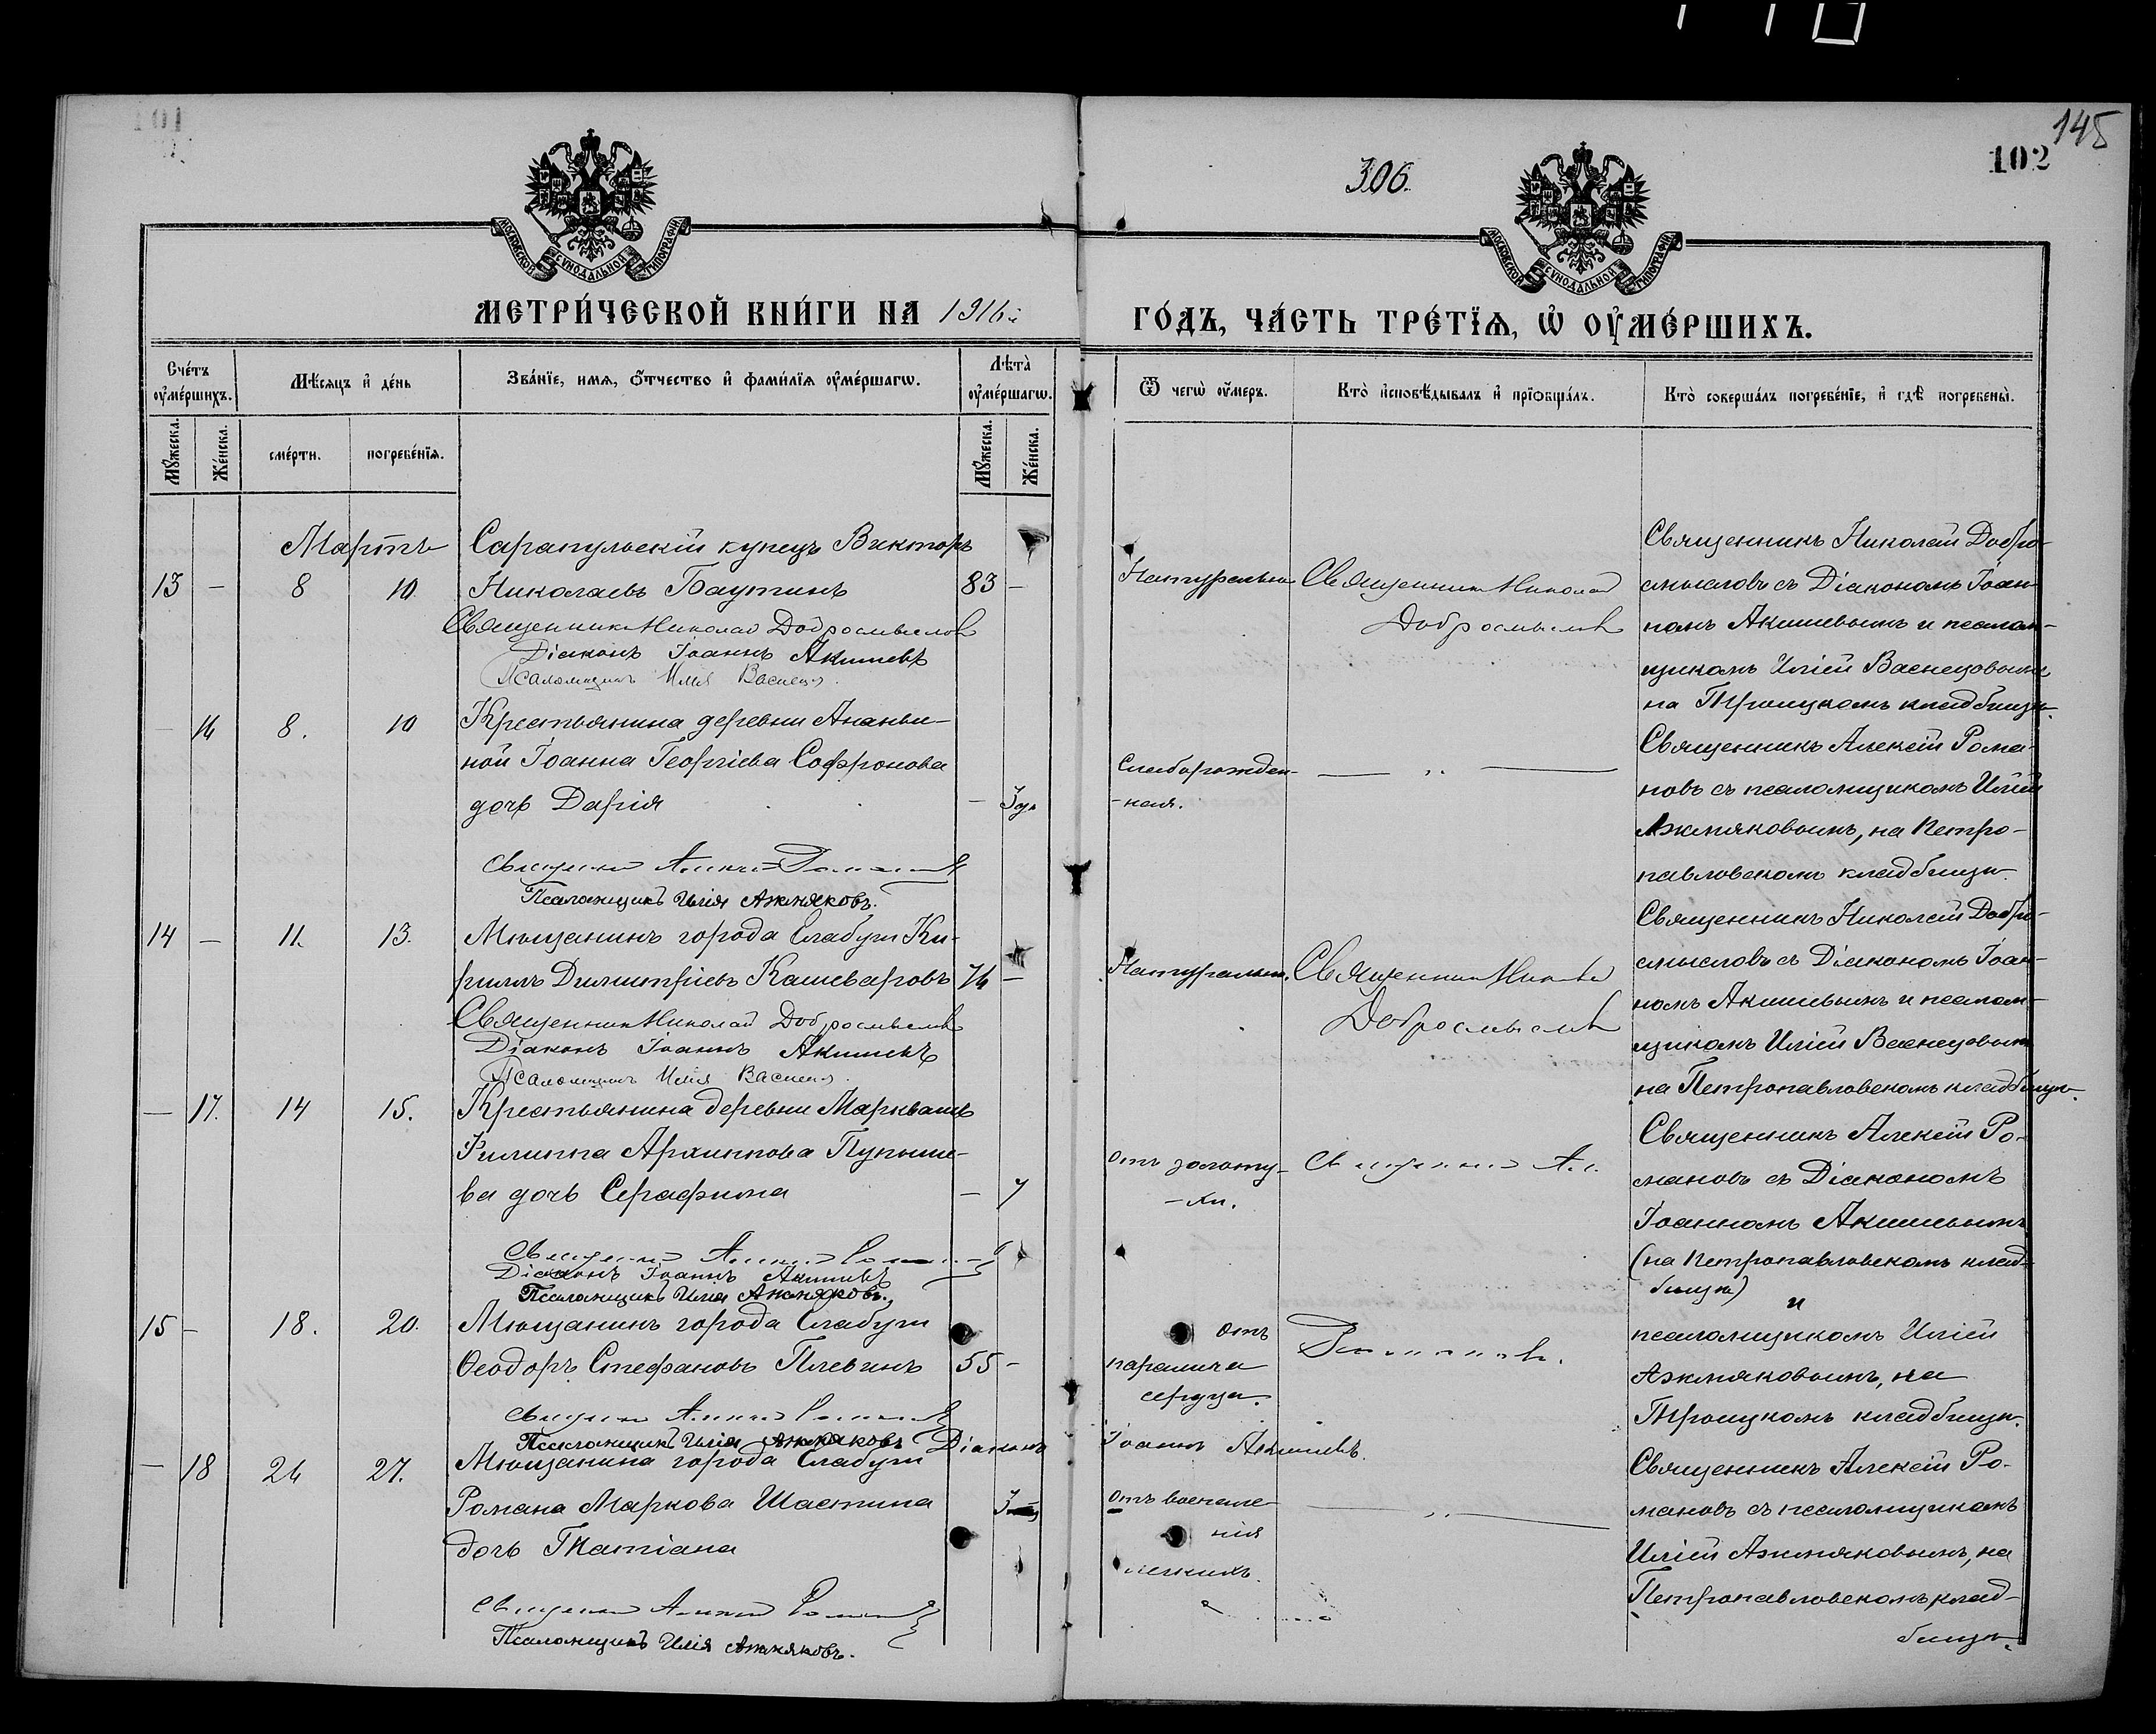 145
102
101
306.
МОСКОВСКОЙ СУНОДАЛЬНОЙ ТИПОГРАФІИ
МОСКОВСКОЙ СУНОДАЛЬНОЙ ТИПОГРАФІИ
МЕТРИ́ЧЕСКОЙ КНИ́ГИ НА 1916 г.
ГО́ДЪ, ЧА́СТЬ ТРЕ́ТЇѦ, Ѡ҆ ОУ҆МЕ́РШИХЪ.
Сче́тъ оу҆ме́ршихъ.
Мѣ́сяцъ и҆ де́нь
Зва́нїе, имѧ, ѻ҆́тчество и҆ фами́лїѧ оу҆ме́ршагѡ.
Лѣта̀ оу҆ме́ршагѡ.
Ѿ чегѡ̀ оу҆́меръ.
Кто̀ и҆сповѣ́дывалъ и҆ прїѡбща́лъ.
Кто̀ соверша́лъ погребе́нїе, и҆ гдѣ̀ погребены̀.
Мꙋжеска.
Же́нска.
сме́рти.
погребе́нїѧ.
Мꙋжеска.
Же́нска.
Мартъ
Сарапульскій купецъ Викторъ
13 – 8 10 Николаевъ Баутинъ 83 –
Священникъ Николай Добросмысловъ
Діаконъ Іоаннъ Акишевъ
Псаломщикъ Илія Васнецовъ
Натуральн.
Священникъ Николай
Добросмысловъ
Священникъ Николай Добро-
смысловъ съ Діакономъ Іоан-
номъ Акишевымъ и псалом-
щикомъ Иліей Васнецовымъ
на Троицкомъ кладбищѣ.
– 16 8. 10 Крестьянина деревни Ананьи-
ной Іоанна Георгіева Софронова
дочь Дарія – 3 д.
Священникъ Алексій Романовъ
Псаломщикъ Илія Ажмяковъ.
Слаборожден-
-ная.
— „ —
Священникъ Алексій Рома-
новъ съ псаломщикомъ Иліей
Ажмяковымъ, на Петро-
павловскомъ кладбищѣ.
14 – 11. 13. Мѣщанинъ города Елабуги Ки-
риллъ Димитріевъ Кашеваровъ 76 –
Священникъ Николай Добросмысловъ
Діаконъ Іоаннъ Акишевъ
Псаломщикъ Илія Васнецовъ
Натуральн.
Священникъ Николай
Добросмысловъ
Священникъ Николай Добро-
смысловъ съ Діакономъ Іоан-
номъ Акишевымъ и псалом-
щикомъ Иліей Васнецовымъ
на Петропавловскомъ кладбищѣ.
– 17. 14 15. Крестьянина деревни Марквашъ
Филиппа Архиппова Пупыше-
ва дочь Серафима – 7
Священникъ Алексій Романовъ
Діаконъ Іоаннъ Акишевъ
Псаломщикъ Илія Ажмяковъ.
отъ золоту-
-хи.
Священникъ Ал.
Священникъ Алексій Ро-
мановъ съ Діакономъ
Іоанномъ Акишевымъ
(на Петропавловскомъ клад-
бищѣ)
15 – 18. 20. Мѣщанинъ города Елабуги
Ѳеодоръ Стефановъ Плевинъ 55 –
Священникъ Алексій Романовъ
Псаломщикъ Илія Ажмяковъ Діаконъ Іоаннъ Акишевъ.
отъ
паралича
сердца.
Романовъ.
и
псаломщикомъ Иліей
Ажмяковымъ, на
Троицкомъ кладбищѣ.
– 18 26 27. Мѣщанина города Елабуги
Романа Маркова Шастина 3
дочь Татіана
Священникъ Алексій Романовъ
Псаломщикъ Илія Ажмяковъ.
отъ воспале-
нія
легкихъ.
— „ —
Священникъ Алексій Ро-
мановъ съ псаломщикомъ
Иліей Ажмяковымъ, на
Петропавловскомъ клад-
бищѣ.